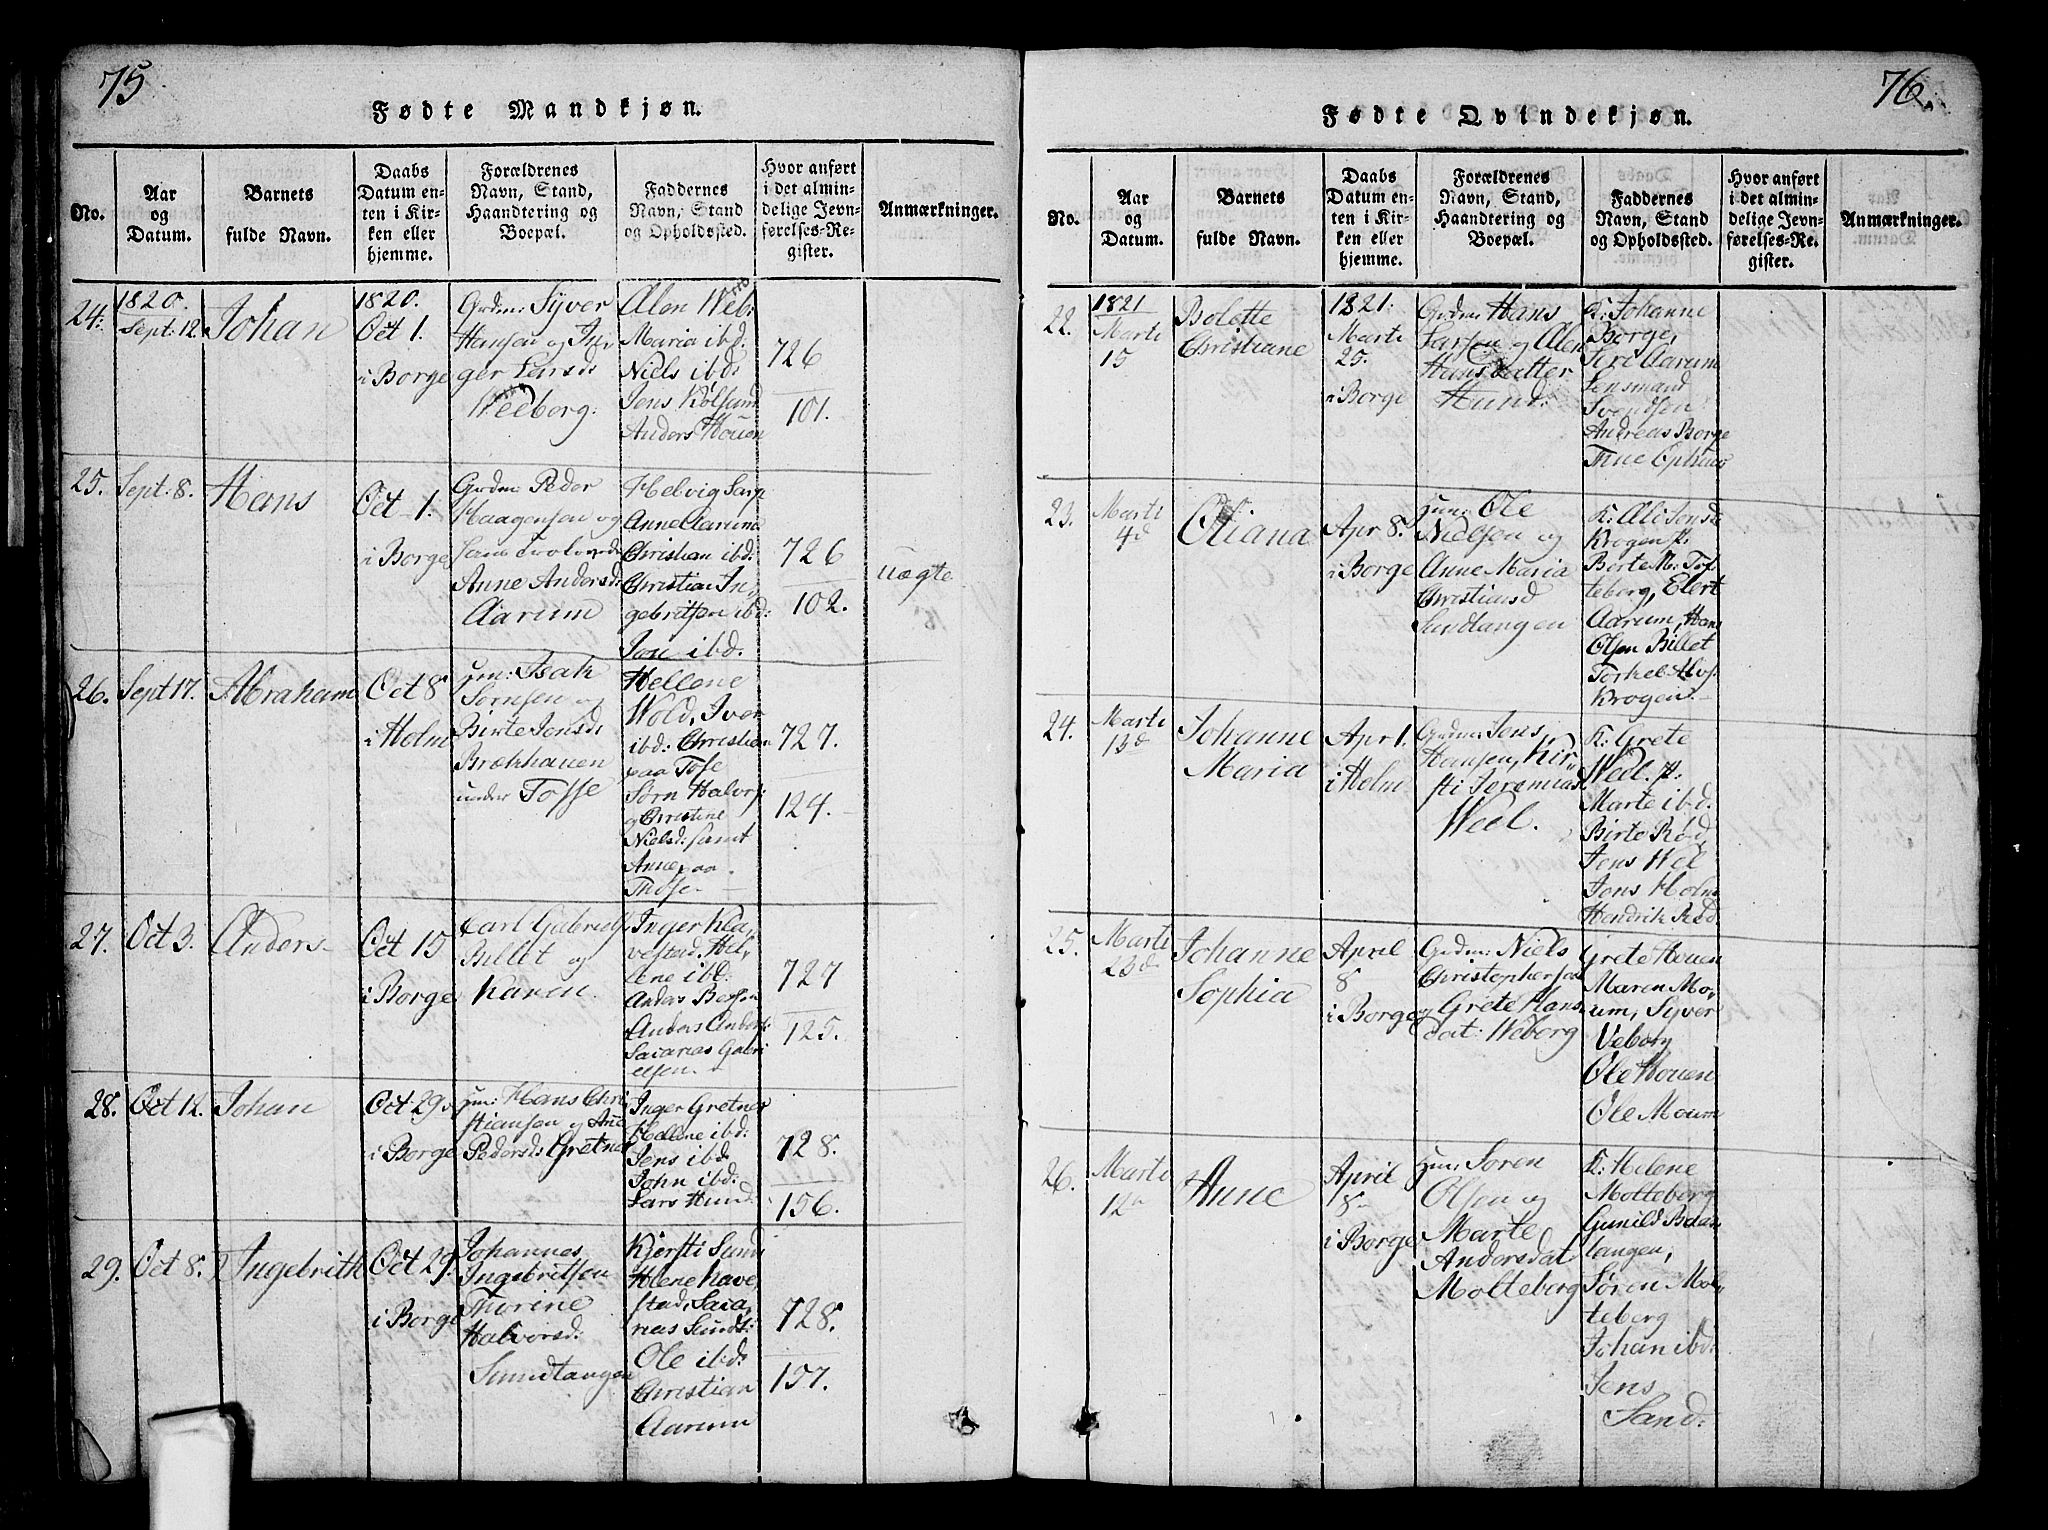 75
Fødte Mandkjøn.
No.
Aar
og
Datum.
Barnets
fulde Navn.
Daabs
Datum en-
ten i Kir-
ken eller
hjemme.
Forældrenes
Navn, Stand,
Haandtering og
Boepæl.
Faddernes
Navn, Stand
og Opholdssted.
Hvor anført
i det almin-
delige Jevn-
førelses-Re-
gister.
Anmærkninger.
24.
1820.
Sept: 12.
Johan
1820.
Oct 1.
i Borge
Grdm: Syver
Hansen og In-
ger Larsd:
Weeborg:
Alen Web:
Maria ibd.
Niels ibd:
Jens Kølsund
Anders Houen
726
101.
25.
Sept: 8.
Hans
Oct 1.
i Borge
Grdm: Peder
Haagensen og
Anne Andersd:
Aarum
Helvig Sarp
Anne Aarum
Christian ibd:
Christian In-
gebritsen ibd:
Jon ibd.
726
102.
uægte
26.
Sept 17.
Abraham
Oct 8
i Holm
Hm: Isak
Sørnsen og
Birte Jensd:
Brækhauen
under Tosse
Hellene
Wold, Iver
ibd: Christian
paa Tose
Sørn Halvors:
og Christine
Nielsd: samt
Anne paa
Those
727.
124.
27.
Oct 3.
Anders
Oct 15
i Borge
Carl Gabriels:
Billet og
Karen.
Inger Kia-
vestad, Hel-
ene ibd:
Anders Bersen
Anders Anders:
Sacarias Gabri
elsen
727
125.
28.
Oct 12.
Johan
Oct 29
i Borge
Hm: Hans Chri
stiansen og Ane
Pedersd: Gretnes
Inger Gretnes
Helene ibd:
Jens ibd
John ibd.
Lars Hund:
728.
156.
29.
Oct 8.
Ingebrith
Oct 29.
i Borge
Johannes
Ingebritsen
Thorine
Halvorsd:
Sundtangen
Kjersti Sund
Helene Kave
stad, Saca-
rias Sundt:
Ole ibd:
Christian
Aarum
728.
157.
76.
Fødte Qvindekjøn.
No.
Aar
og
Datum.
Barnets
fulde Navn.
Daabs
Datum en-
ten i Kir-
ken eller
hjemme.
Forældrenes
Navn, Stand,
Haandtering og
Boepæl.
Faddernes
Navn, Stand
og Opholdssted.
Hvor anført
i det almin-
delige Jevn-
førelses-Re-
gister.
Anmærkninger.
22.
1821
Marti
15
Bolette
Christiane
1821.
Marti
25.
i Borge
Grdm: Hans
Larsen og Alen
Hansdatter
Hund:
K: Johanne
Borge,
Siri Aarum
Lensmand
Svendsen
Andreas Borge
23.
Marti
4d
Oliana
Apr 8.
i Borge
Hm: Ole
Nielsen og
Anne Maria
Christiansd
Sundtangen
K: Ali Jonsd
Krogen P:
Birte M: Tof-
teberg, Elert
Aarum, Hans
Olsen Billet
Torkel
Krogen
24.
Marti
13d
Johanne
Maria
Apr 1.
i Holm
Grdm: Jens
Hansen, Kir-
sti Jeremiasd
Weel.
K: Grete
Weel. P:
Marte ibd.
Birte Rød
Jens Wel
Jens Holm
Hendrik Rød
25.
Marti
23d
Johanne
Sophia
April
8
i Borge
Grdm: Niels
Christophersen
og Grete Hans
dat: Weborg
Grete Houen
Maren Mo-
um, Syver
Veborg
Ole Houen
Ole Moum
26.
Marti
12
Anne
April
8
i Borge
Hm: Soren
Olsen og
Marte
Andersdat
Molteberg
K: Helene
Molteberg
Gunild Bolan
tangen,
Søren Mol-
teberg
Johan ibd:
Jens
Sand.